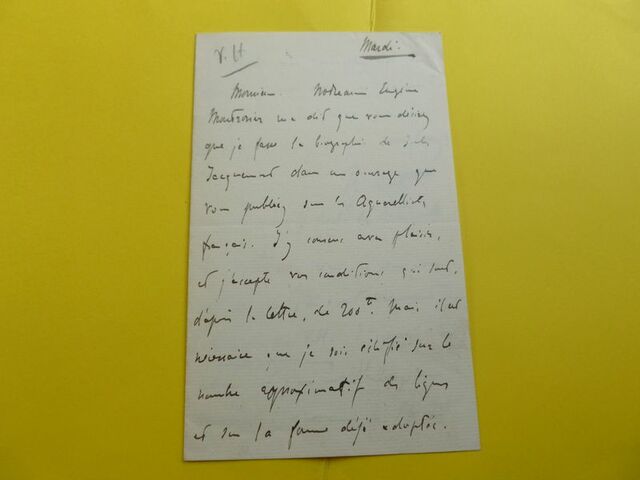 V. H
Mardi.
Monsieur. Eugène
Montrosier m'a dit que vous désirez
que je fasse la biographie de Jules
Jacquemart dans un ouvrage que
vous publiez sur les Aquarellistes
français. J'y consens avec plaisir,
et j'accepte vos conditions qui sont,
d'après la lettre, de 200f. Mais il est
nécessaire que je sois édifié sur le
nombre approximatif des lignes
et sur la forme déjà adoptée.